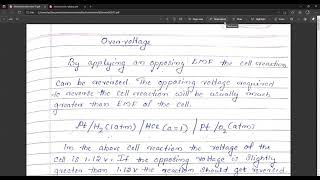 Over-voltage
By applying an opposing EMF the cell reaction
can be reversed. The opposing voltage required
to reverse the cell reaction will be usually much
greater than EMF of the cell.
Pt/H₂(1atm)/HCl(a=1)/Pt/O₂(atm)
In the above cell reaction the voltage of
the cell is 1.12 v. If the opposing voltage is slightly
greater than 1.12 v the reaction should get reversed